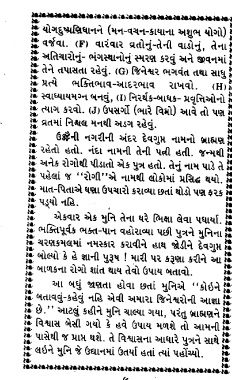 યોગદુષ્પ્રણિધાનને (મન-વચન-કાયાના અશુભ યોગો)
વર્જવા. (F) વારંવાર વ્રતોનું-તેની વાડોનું, તેના
અતિચારોનું-ભંગસ્થાનોનું સ્મરણ કરવું અને જીવનમાં
તેને તપાસતા રહેવું. (G) જિનેશ્વર ભગવંત તથા સાધુ
પ્રત્યે ભક્તિભાવ-આદરભાવ રાખવો. (H)
સ્વાધ્યાયમગ્ન બનવું, (I) નિરર્થક-બાધક-પ્રવૃત્તિઓનો
ત્યાગ કરવો. (J) ઉપસર્ગો (ભારે વિઘ્નો) આવે તો પણ
વ્રતમાં નિશ્ચલ મનથી અડગ રહેવું.
નગરીની અંદર દેવગુપ્ત નામનો બ્રાહ્મણ
રહેતો હતો. નંદા નામની તેની પત્ની હતી. જન્મથી
અનેક રોગોથી પીડાતો એક પુત્ર હતો. તેનું નામ પાડે તે
પહેલાં જ ‘‘રોગી’’ એ નામથી લોકોમાં પ્રસિદ્ધ થયો.
માત-પિતાએ ઘણા ઉપચારો કરાવ્યા છતાં થોડો પણ ફરક
પડ્યો નહિ.
એકવાર એક મુનિ તેના ઘરે ભિક્ષા લેવા પધાર્યા.
ભક્તિપૂર્વક ભક્ત-પાન વહોરાવ્યા પછી પુત્રને મુનિના
ચરણકમલમાં નમસ્કાર કરાવીને હાથ જોડીને દેવગુપ્ત
બોલ્યો કે હે જ્ઞાની પુરુષ ! મારી પર કરુણા કરીને આ
બાળકના રોગો શાંત થાય તેવો ઉપાય બતાવો.
આ બધું જાણતા હોવા છતાં મુનિએ ‘‘કોઇને
બતાવવું-કહેવું નહિ એવી અમારા જિનેશ્વરોની આજ્ઞા
છે.’’ આટલું કહીને મુનિ ચાલ્યા ગયા, પરંતુ બ્રાહ્મણને
વિશ્વાસ બેસી ગયો કે હવે ઉપાય મળશે તો આમની
પાસેથી જ પ્રાપ્ત થશે. તે વિશ્વાસના આધારે પુત્રને સાથે
લઇને મુનિ જે ઉદ્યાનમાં ઉતર્યા હતાં ત્યાં પહોંચ્યો.